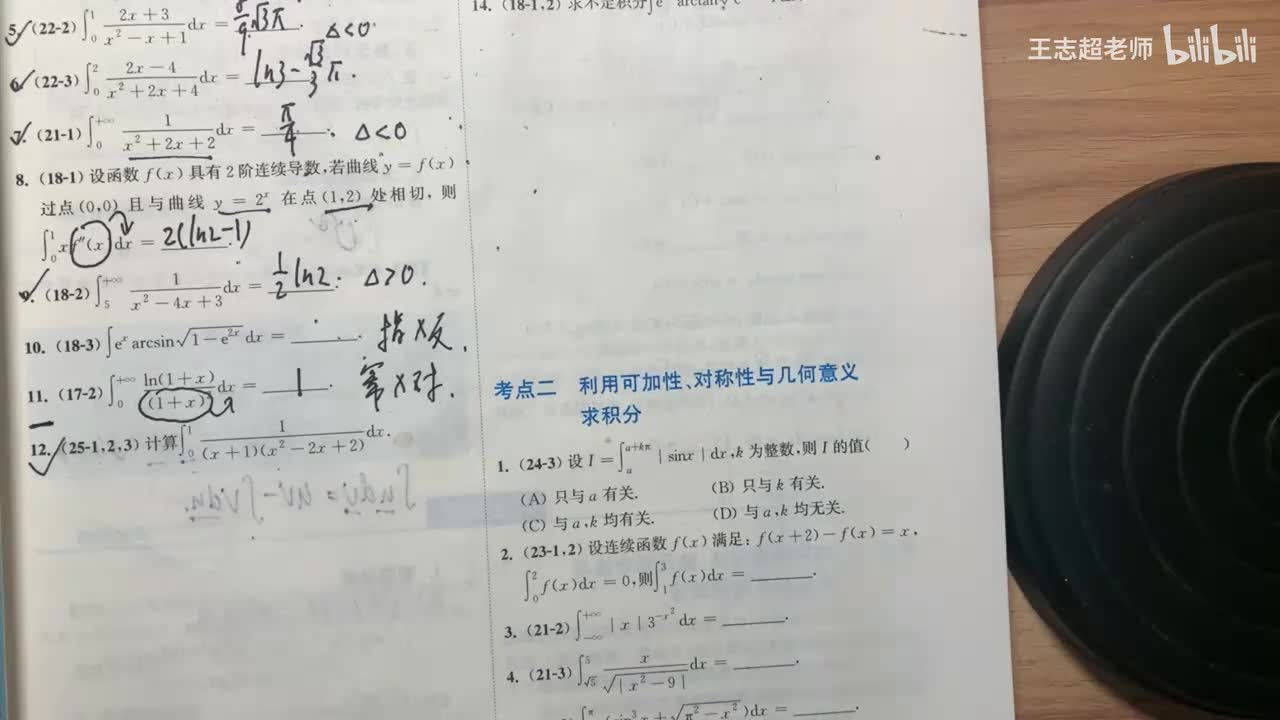 5. (22-2) ∫₀¹ (2x+3)/(x²−x+1) dx = 8/9 √3π. Δ<0
6. (22-3) ∫₀² (2x−4)/(x²+2x+4) dx = ln3−√3/3 π.
7. (21-1) ∫₀^{+∞} 1/(x²+2x+2) dx = π/4. Δ<0
8. (18-1) 设函数 f(x) 具有 2 阶连续导数,若曲线 y=f(x)
过点(0,0) 且与曲线 y=2ˣ 在点(1,2) 处相切, 则
∫₀¹ xf″(x)dx = 2(ln2−1)
9. (18-2) ∫₅^{+∞} 1/(x²−4x+3) dx = 1/2 ln2. Δ>0.
10. (18-3) ∫eˣ arcsin√(1−e^{2x}) dx = ______. 指×反.
11. (17-2) ∫₀^{+∞} ln(1+x)/(1+x)² dx = 1. 幂×对.
12. (25-1,2,3) 计算∫₀¹ 1/((x+1)(x²−2x+2)) dx.
14. (18-1,2) 求不定积分∫e
王志超老师 bilibili
考点二 利用可加性、对称性与几何意义
求积分
1. (24-3) 设 I=∫ₐ^{a+kπ} |sinx|dx,k 为整数,则 I 的值( )
(A) 只与 a 有关. (B) 只与 k 有关.
(C) 与 a,k 均有关. (D) 与 a,k 均无关.
2. (23-1,2) 设连续函数 f(x) 满足: f(x+2)−f(x)=x,
∫₀² f(x)dx = 0,则∫₁³ f(x)dx = ______.
3. (21-2) ∫_{−∞}^{+∞} |x|3^{−x²} dx = ______.
4. (21-3) ∫_{√5}^5 x/√|x²−9| dx = ______.
(sin³x+√(π²−x²))dx = ______.